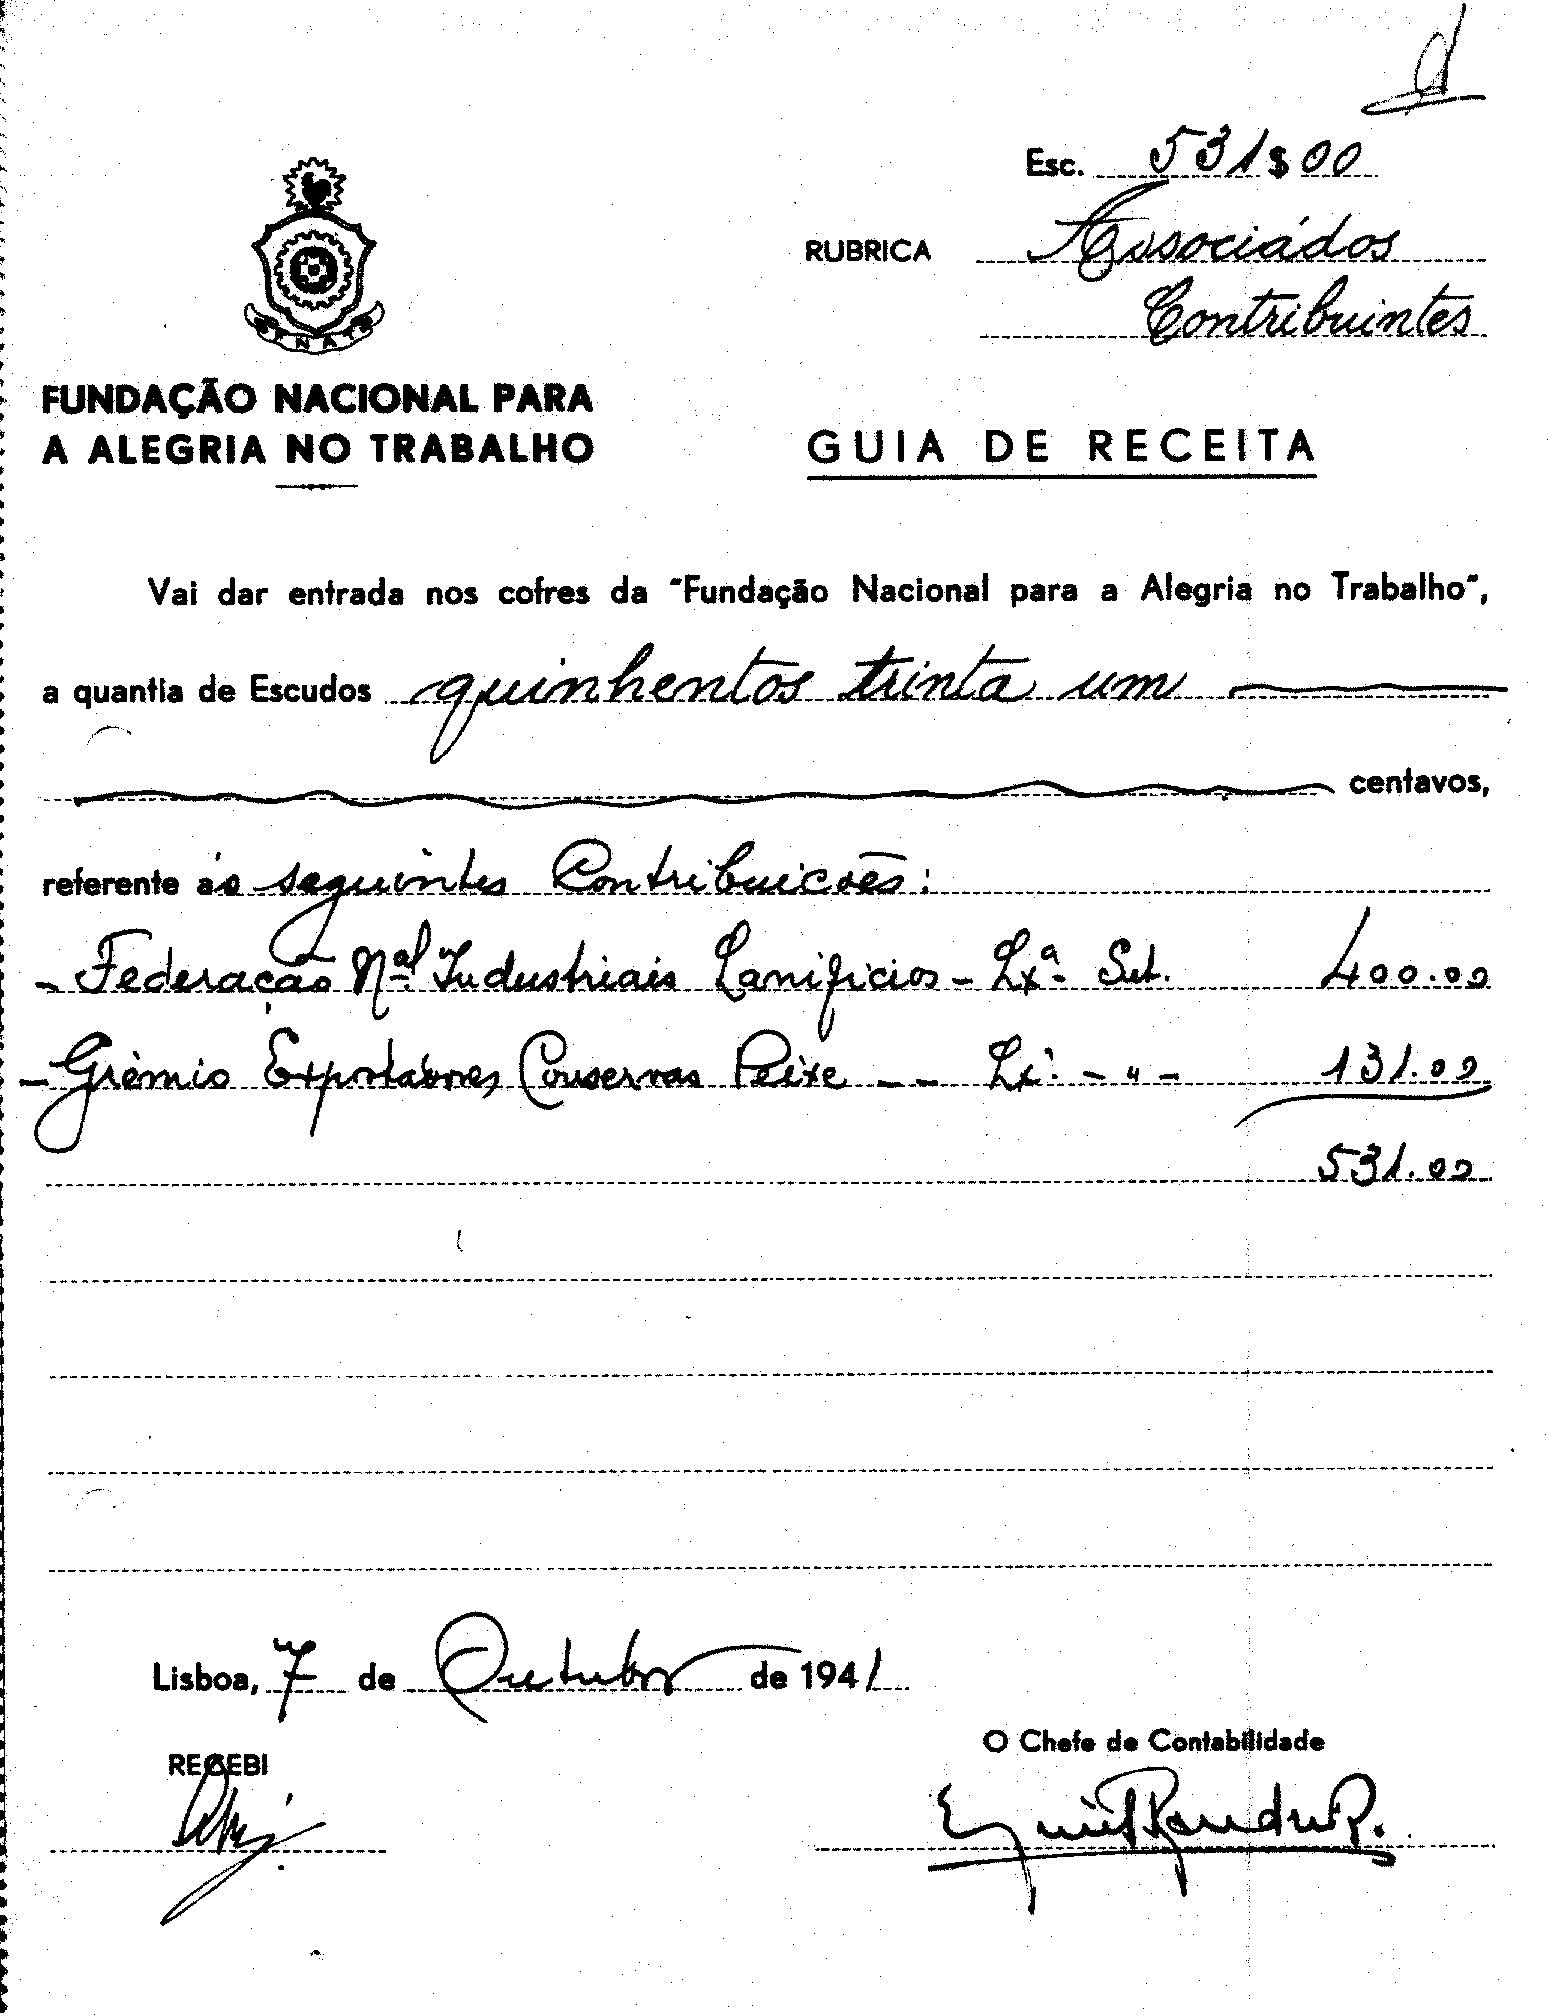 Esc. 531$00
RUBRICA Associádos
Contribuintes
FNAT
FUNDAÇÃO NACIONAL PARA
A ALEGRIA NO TRABALHO
GUIA DE RECEITA
Vai dar entrada nos cofres da "Fundação Nacional para a Alegria no Trabalho",
a quantia de Escudos quinhentos trinta um
centavos,
referente ás seguintes Contribuicões:
- Federação Nal Industriais Lanificios - Lxa - Set. 400.00
- Grémio Exportadores Conservas Peixe - - Lx. - " - 131.00
531.00
Lisboa, 7 de Outubro de 1941
RECEBI
O Chefe de Contabilidade